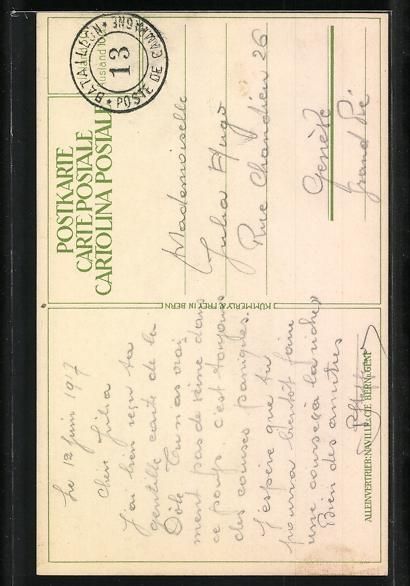 POSTKARTE
CARTE POSTALE
CARTOLINA POSTALE
BATAILLON
13
POSTE DE CAMPAGNE
Mademoiselle
Julia Hugo
Rue Chandieu 26
Genève
Grand Pré
KÜMMERLY & FREY IN BERN
Le 12 Juin 1917
Chère Julia
J'ai bien reçu ta
gentille carte de la
Dôle. Tu n'as vrai
ment pas de veine dans
ce pays. c'est toujours
des courses paniques.
J'espère que tu
pourra bientôt faire
une course à la
Bien des amitiés
ALLEINVERTRIEB: NAVILLE & CIE BERN u. GENF